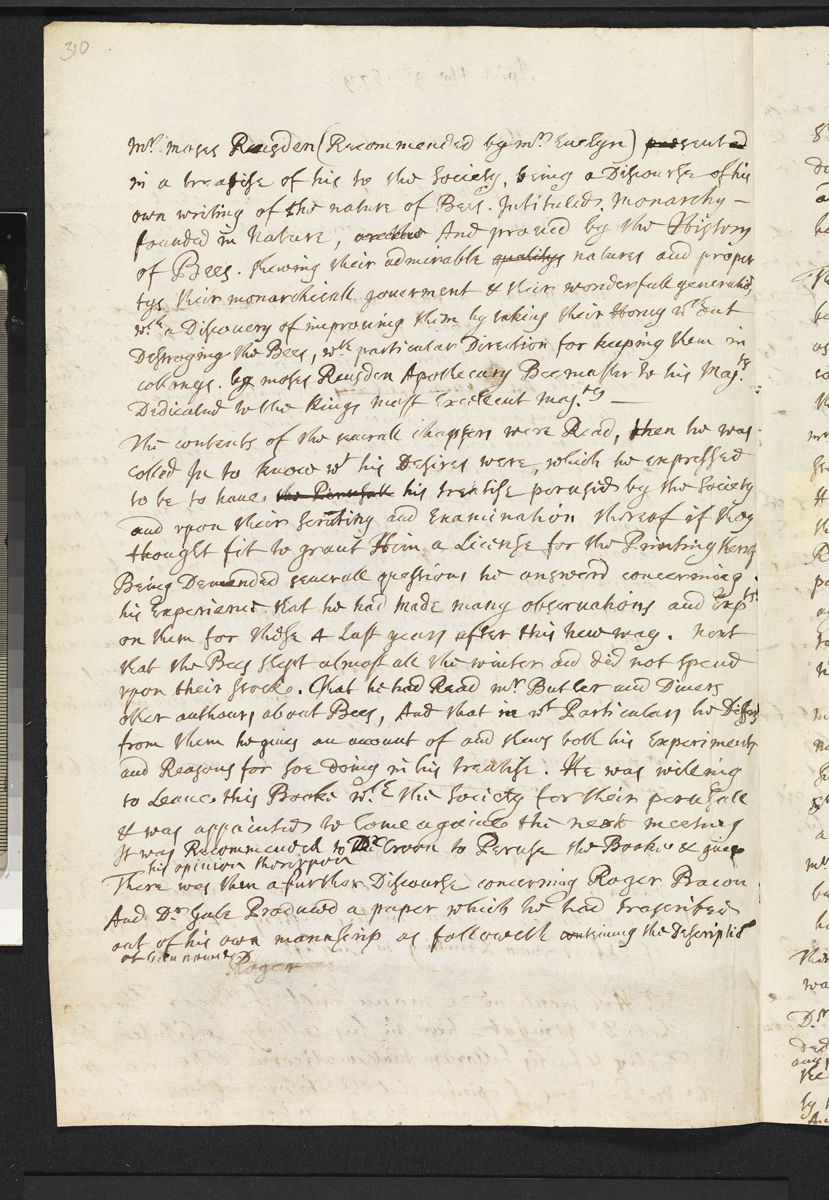 310
Mr. Moses Reusden (Recommended by mr. Euelyn) presented
in a treatise of his to the Society, being a Discourse of his
own writing of the nature of Bees. Intituled. Monarchy -
founded in Nature, And proued by the History
of Bees. shewing their admirable qualitys natures and proper
tys their monarchicall gouerment & their wonderfull generation,
wth a Discouery of improuing them by taking their Honey wthout
Destroying the Bees, wth particular Direction for keeping them in
colonys. by moses Reusden Apothecary Bee master to his Majts.
Dedicated to the Kings Most Excellent Majty. —
The contents of the seuerall chapters were Read, then he was
called In to know wt his Desires were, which he expressed
to be to haue the Perusall his treatise perused by the Society
and vpon their scrutiny and Examination thereof if they
thought fit to grant Him a License for the Printing thereof
Being Demanded seuerall questions he answerd concerning
his Experience that he had made many obseruations and Expts.
on them for these 4 last years after this new way. next
that the Bees slept almost all the winter and did not spend
vpon their stocke. that he had Read mr. Butler and Diuers
other authours about Bees, And that in wt Particulars he Differs
from them he giues an account of and shews both his Experiments
and Reasons for soe doing in his treatise. He was willing
to Leaue this Booke wth the Society for their perusall
& was appointed to Come againe the next meeting
It was Recommended to Dr. Croon to Peruse the Booke & giue
his opinion therevpon
There was then a further Discourse concerning Roger Bacon
And Dr Gale Produced a paper which he had trascribed
out of his own manuscrip as followeth containing the Descriptio
of Gunpowder
Roger